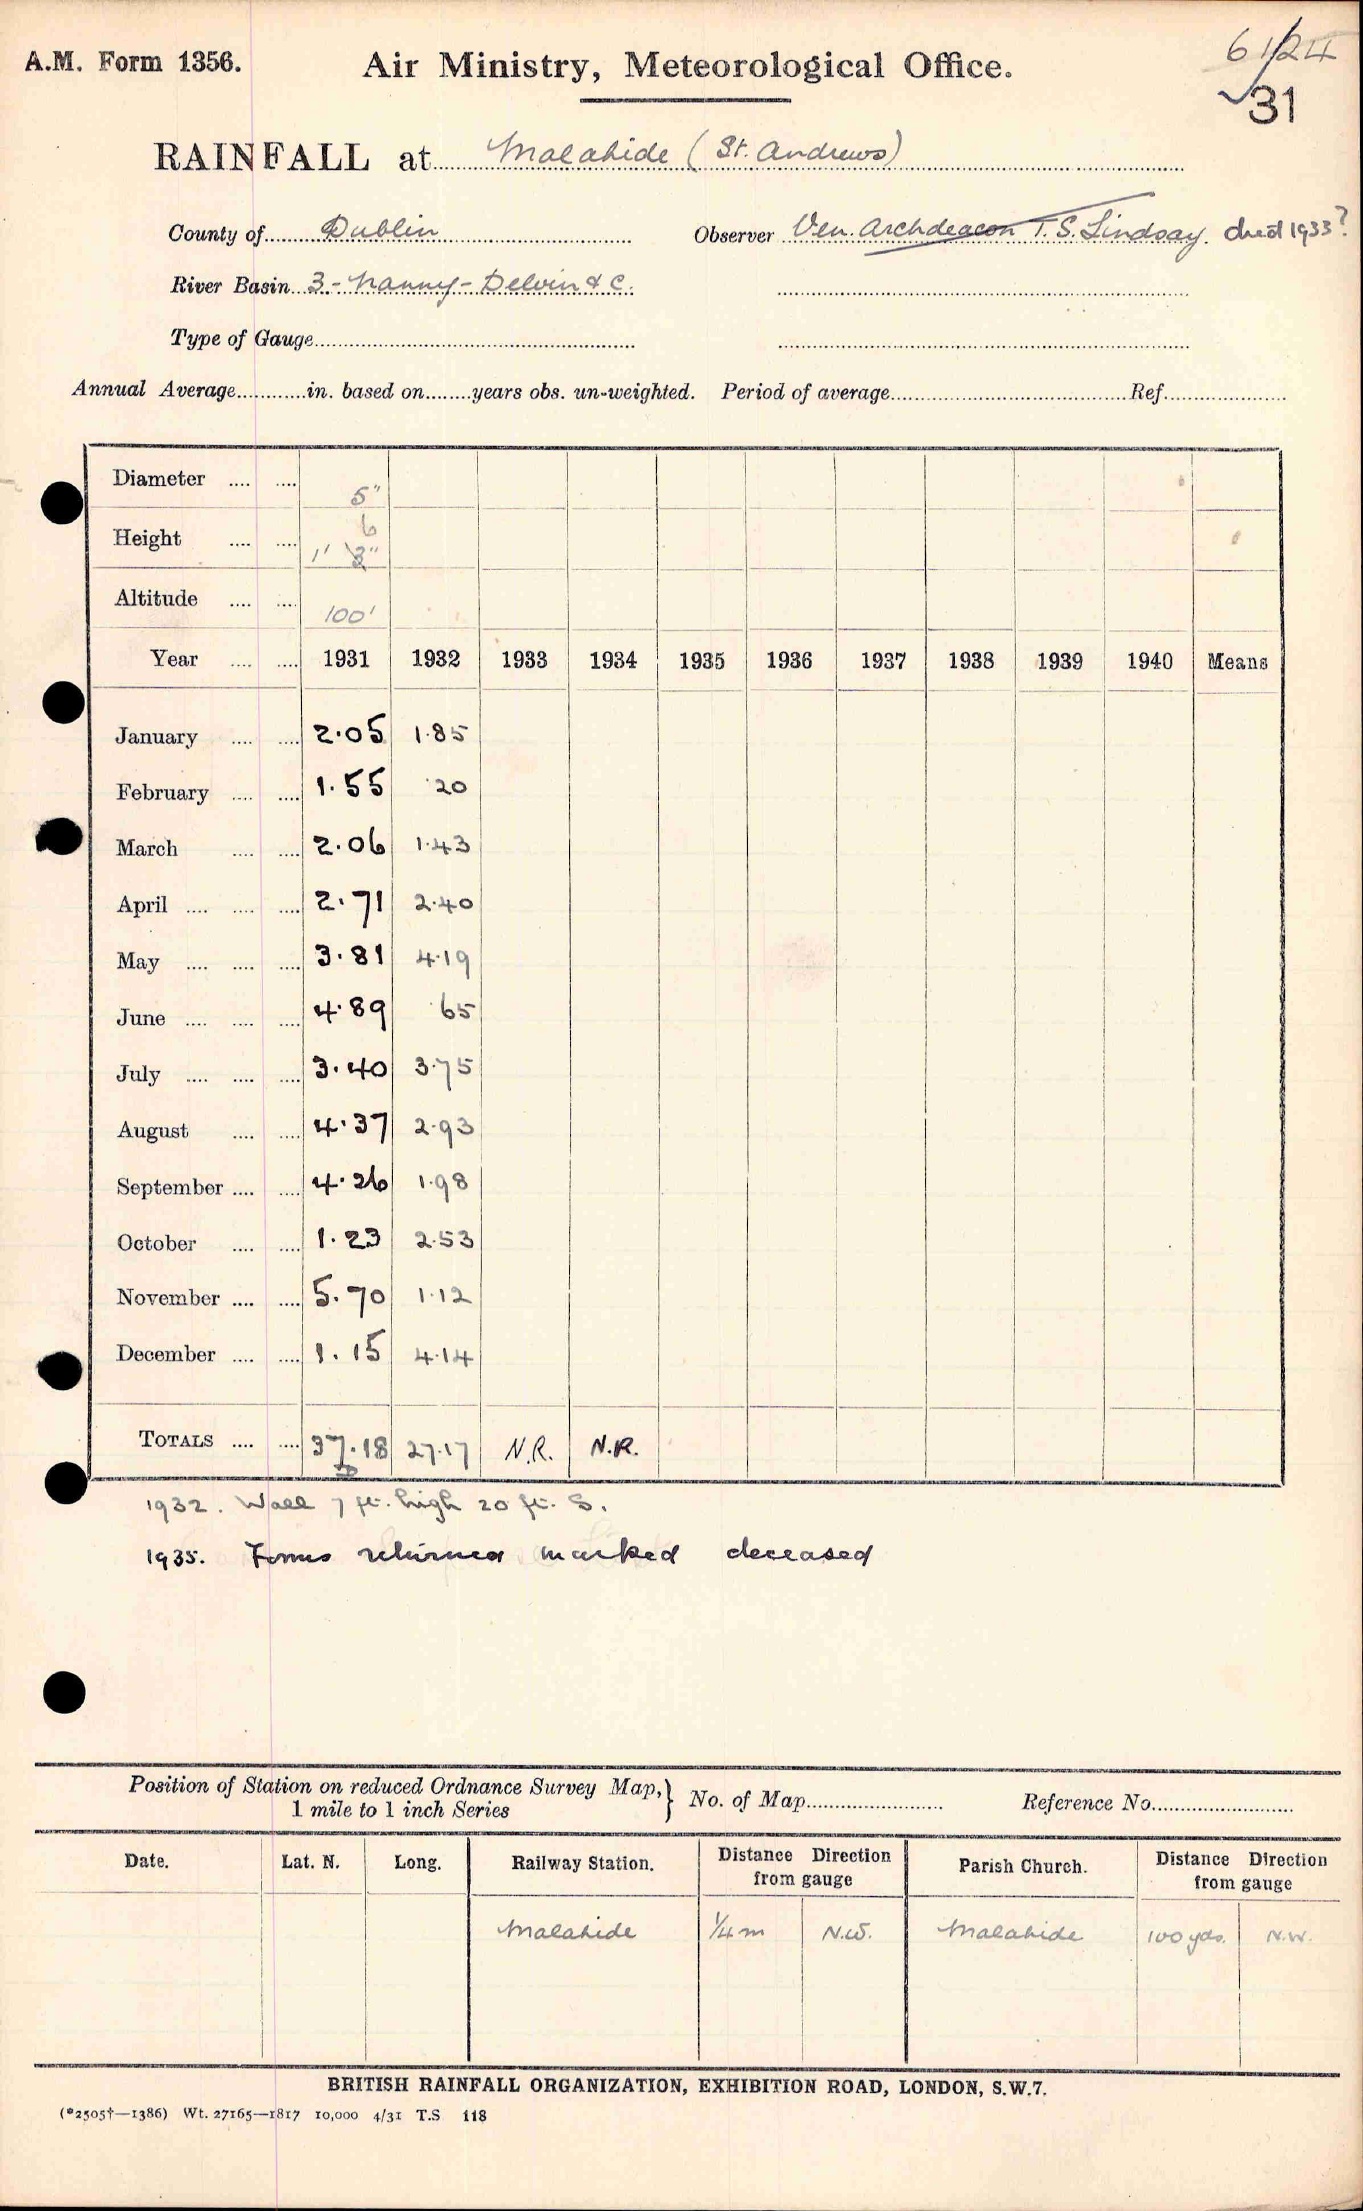 A.M. Form 1356.
Air Ministry, Meteorological Office.
61/24
31
RAINFALL at Malahide (St. Andrews)
County of Dublin
Observer Ven. Archdeacon T.S. Lindsay. died 1933?
River Basin 3 - Nanny - Delvin & C.
Type of Gauge
Annual Average in. based on years obs. un-weighted. Period of average Ref.
Diameter 5"
Height 1' 6 3"
Altitude 100'
Year 1931 1932 1933 1934 1935 1936 1937 1938 1939 1940 Means
January 2.05 1.85
February 1.55 .20
March 2.06 1.43
April 2.71 2.40
May 3.81 4.19
June 4.89 .65
July 3.40 3.75
August 4.37 2.93
September 4.26 1.98
October 1.23 2.53
November 5.70 1.12
December 1.15 4.14
TOTALS 37.18 27.17 N.R. N.R.
1932. Wall 7 ft. high 20 ft. S.
1935. Forms returned marked deceased
Position of Station on reduced Ordnance Survey Map, } No. of Map Reference No.
1 mile to 1 inch Series
Date. Lat. N. Long. Railway Station. Distance Direction from gauge Parish Church. Distance Direction from gauge
Malahide 1/4 m N.W. Malahide 100 yds. N.W.
BRITISH RAINFALL ORGANIZATION, EXHIBITION ROAD, LONDON, S.W.7.
(*2505†—1386) Wt. 27165—1817 10,000 4/31 T.S 118